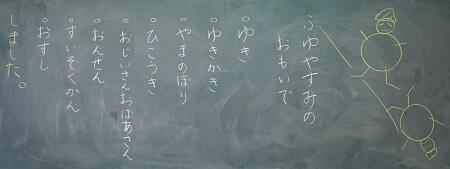 ふゆやすみの
おもいで
○ゆき
○ゆきかき
○やまのぼり
○ひこうき
○おじいさんおばあさん
○おんせん
○すいぞくかん
○おすし
しました。